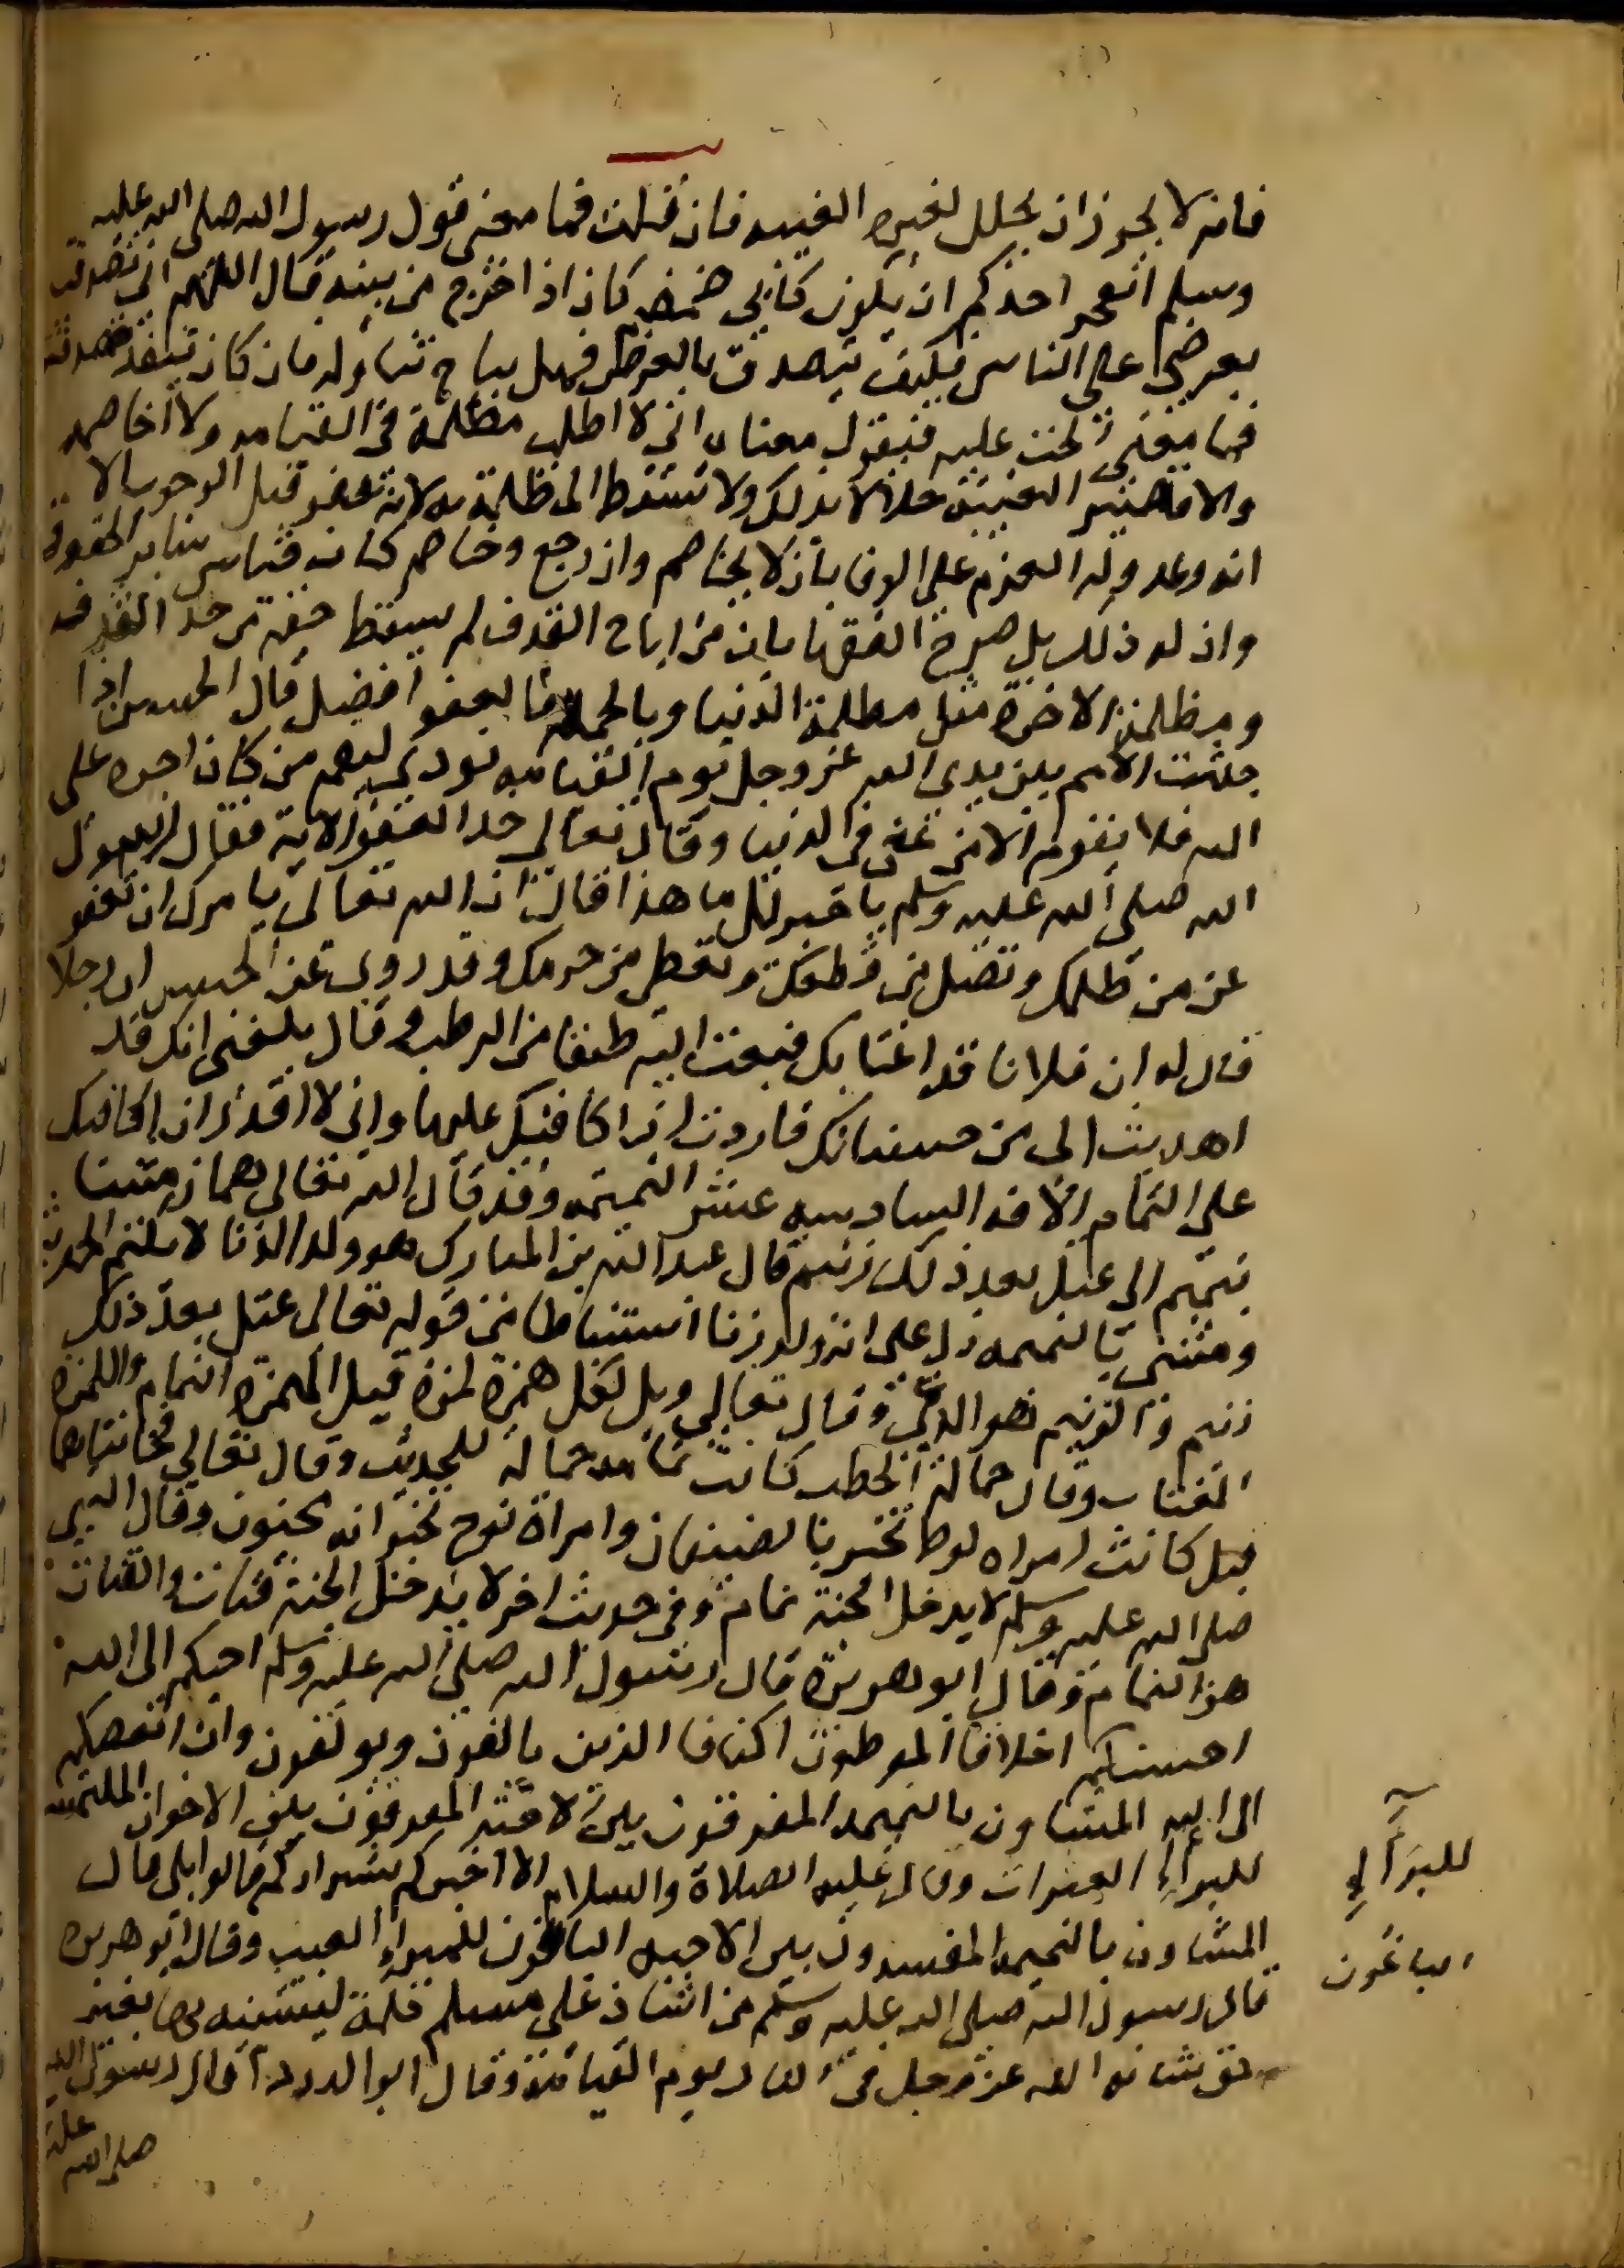 فانه لا يجوز ان يحلل لغيره الغيبه فان قلت فما معنى قول رسول الله صلى الله عليه
وسلم ايعجز احدكم ان يكون كابى ضمضم كان اذا خرج من بيته قال اللهم انى تصدقت
بعرضى على الناس فكيف يتصدق بالعرض فهل يباح تناوله فان كان تنفذ صدقته
فما معنى الحث عليه فنقول معناه انى لا اطلب مظلمة فى القيامه ولا اخاصمه
والا فلا تصير الغيبة حلالا بذلك ولا تسقط المظلمة لانه عفو قبل الوجوب الا
انه وعد وله العزم على الوفا بان لا يخاصم وان رجع وخاصم كان قياس ساير الحقوق
وان له ذلك بل صرح الفقها بان من اباح القذف لم يسقط حقه من حد القذف
ومظلمة الاخرة مثل مظلمة الدنيا وبالجملة فالعفو افضل قال الحسن اذا
جثت الامم بين يدى الله عز وجل يوم القيامه نودى ليقم من كان اجره على
الله فلا يقوم الا من عفى فى الدنيا وقال تعالى خذ العفو الاية فقال رسول
الله صلى الله عليه وسلم يا جبريل ما هذا قال ان الله تعالى يامرك ان تعفو
عن من ظلمك وتصل من قطعك وتعطى من حرمك وقد روى عن الحسن ان رجلا
قال له ان فلانا قد اغتابك فبعث اليه طبقا من الرطب وقال بلغنى انك قد
اهديت الى من حسناتك فاردت ان اكافيك عليها وانى لا اقدر ان اكافيك
على التمام الافه السادسه عشر النميمه وقد قال الله تعالى هماز مشا
بنميم الى عتل بعد ذلك زنيم قال عبد الله بن المبارك هو ولد الزنا لا يكتم الحديث
ومشى بالنميمه دل على انه ولد زنا استنباطا من قوله تعالى عتل بعد ذلك
زنيم والزنيم هو الدعى وقال تعالى ويل لكل همزة لمزة قيل الهمزة النمام واللمزة
المغتاب وقال حمالة الحطب كانت نمامه حمالة للحديث وقال تعالى فخانتاهما
قيل كانت امراه لوط تخبر بالضيفان وامراة نوح تخبر انه مجنون وقال النبى
صلى الله عليه وسلم لا يدخل الجنة نمام وفى حديث اخر لا يدخل الجنة قتات والقتات
هو النمام وقال ابو هريرة قال رسول الله صلى الله عليه وسلم احبكم الى الله
احسنكم اخلاقا الموطئون اكنافا الذين يالفون ويولفون وان ابغضكم
الى الله المشاون بالنميمه المفرقون بين الاحبه المفرقون بين الاخوان الملتمسه
للبراءِ العثرات وقال عليه الصلاة والسلام الا اخبركم بشراركم قالوا بلى قال
المشاون بالنميمه المفسدون بين الاحبه الباغون للبراءِ العيب وقال ابو هريره
قال رسول الله صلى الله عليه وسلم من اشاد على مسلم كلمة ليشينه بها بغير
حق شانه الله عز وجل فى النار يوم القيامة وقال ابو الدرداء قال رسول الله
صلى الله عليه
للبرآءِ
الباغون